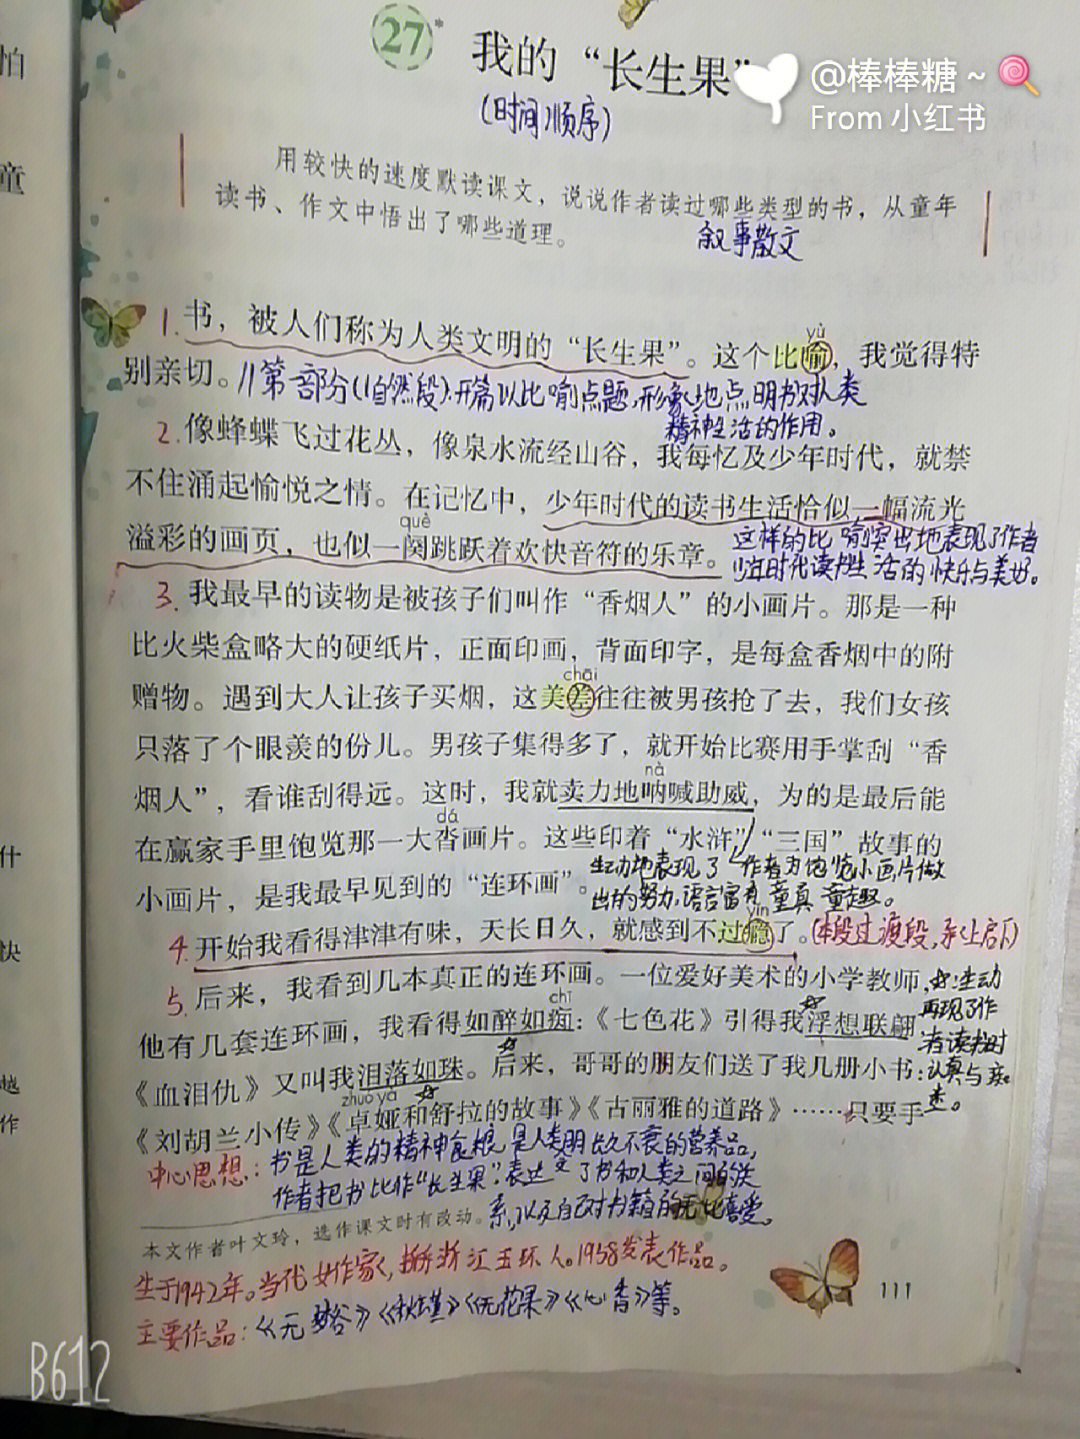 27*
我的“长生果”
@棒棒糖~
From 小红书
(时间顺序)
用较快的速度默读课文，说说作者读过哪些类型的书，从童年
读书、作文中悟出了哪些道理。
叙事散文
yù
1.书，被人们称为人类文明的“长生果”。这个比喻，我觉得特
别亲切。
//第一部分(1自然段):开篇以比喻点题,形象地点明书对人类
精神生活的作用。
2.像蜂蝶飞过花丛，像泉水流经山谷，我每忆及少年时代，就禁
不住涌起愉悦之情。在记忆中，少年时代的读书生活恰似一幅流光
què
溢彩的画页，也似一阕跳跃着欢快音符的乐章。
这样的比喻突出地表现了作者
少年时代读书生活的快乐与美好。
3.我最早的读物是被孩子们叫作“香烟人”的小画片。那是一种
比火柴盒略大的硬纸片，正面印画，背面印字，是每盒香烟中的附
chāi
赠物。遇到大人让孩子买烟，这美差往往被男孩抢了去，我们女孩
只落了个眼羡的份儿。男孩子集得多了，就开始比赛用手掌刮“香
nà
烟人”，看谁刮得远。这时，我就卖力地呐喊助威，为的是最后能
dá
在赢家手里饱览那一大沓画片。这些印着“水浒”“三国”故事的
小画片，是我最早见到的“连环画”。
生动地表现了作者为饱览小画片做
出的努力,语言富有童真童趣。
yǐn
4.开始我看得津津有味，天长日久，就感到不过瘾了。
(本段过渡段,承上启下)
5.后来，我看到几本真正的连环画。一位爱好美术的小学教师，
chī
他有几套连环画，我看得如醉如痴：《七色花》引得我浮想联翩，
《血泪仇》又叫我泪落如珠。后来，哥哥的朋友们送了我几册小书：
zhuó yà
《刘胡兰小传》《卓娅和舒拉的故事》《古丽雅的道路》……只要手
生动
再现了作
者读书时
认真与
中心思想:书是人类的精神食粮,是人类明长久不衰的营养品,
作者把书比作“长生果”,表达了书和人类之间的关
系,以及自己对书籍的无比喜爱。
本文作者叶文玲，选作课文时有改动。
生于1942年。当代女作家,浙江玉环人。1958发表作品。
主要作品:《无梦谷》《秋瑾》《无花果》《心香》等。
111
什
快
越
作
怕
童
B612